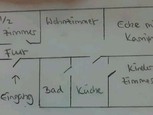 1/2
Zimmer
Wohnzimmer
Ecke mi
Kamin
Flur
Eingang
Bad
Küche
Kinder
Zimmer